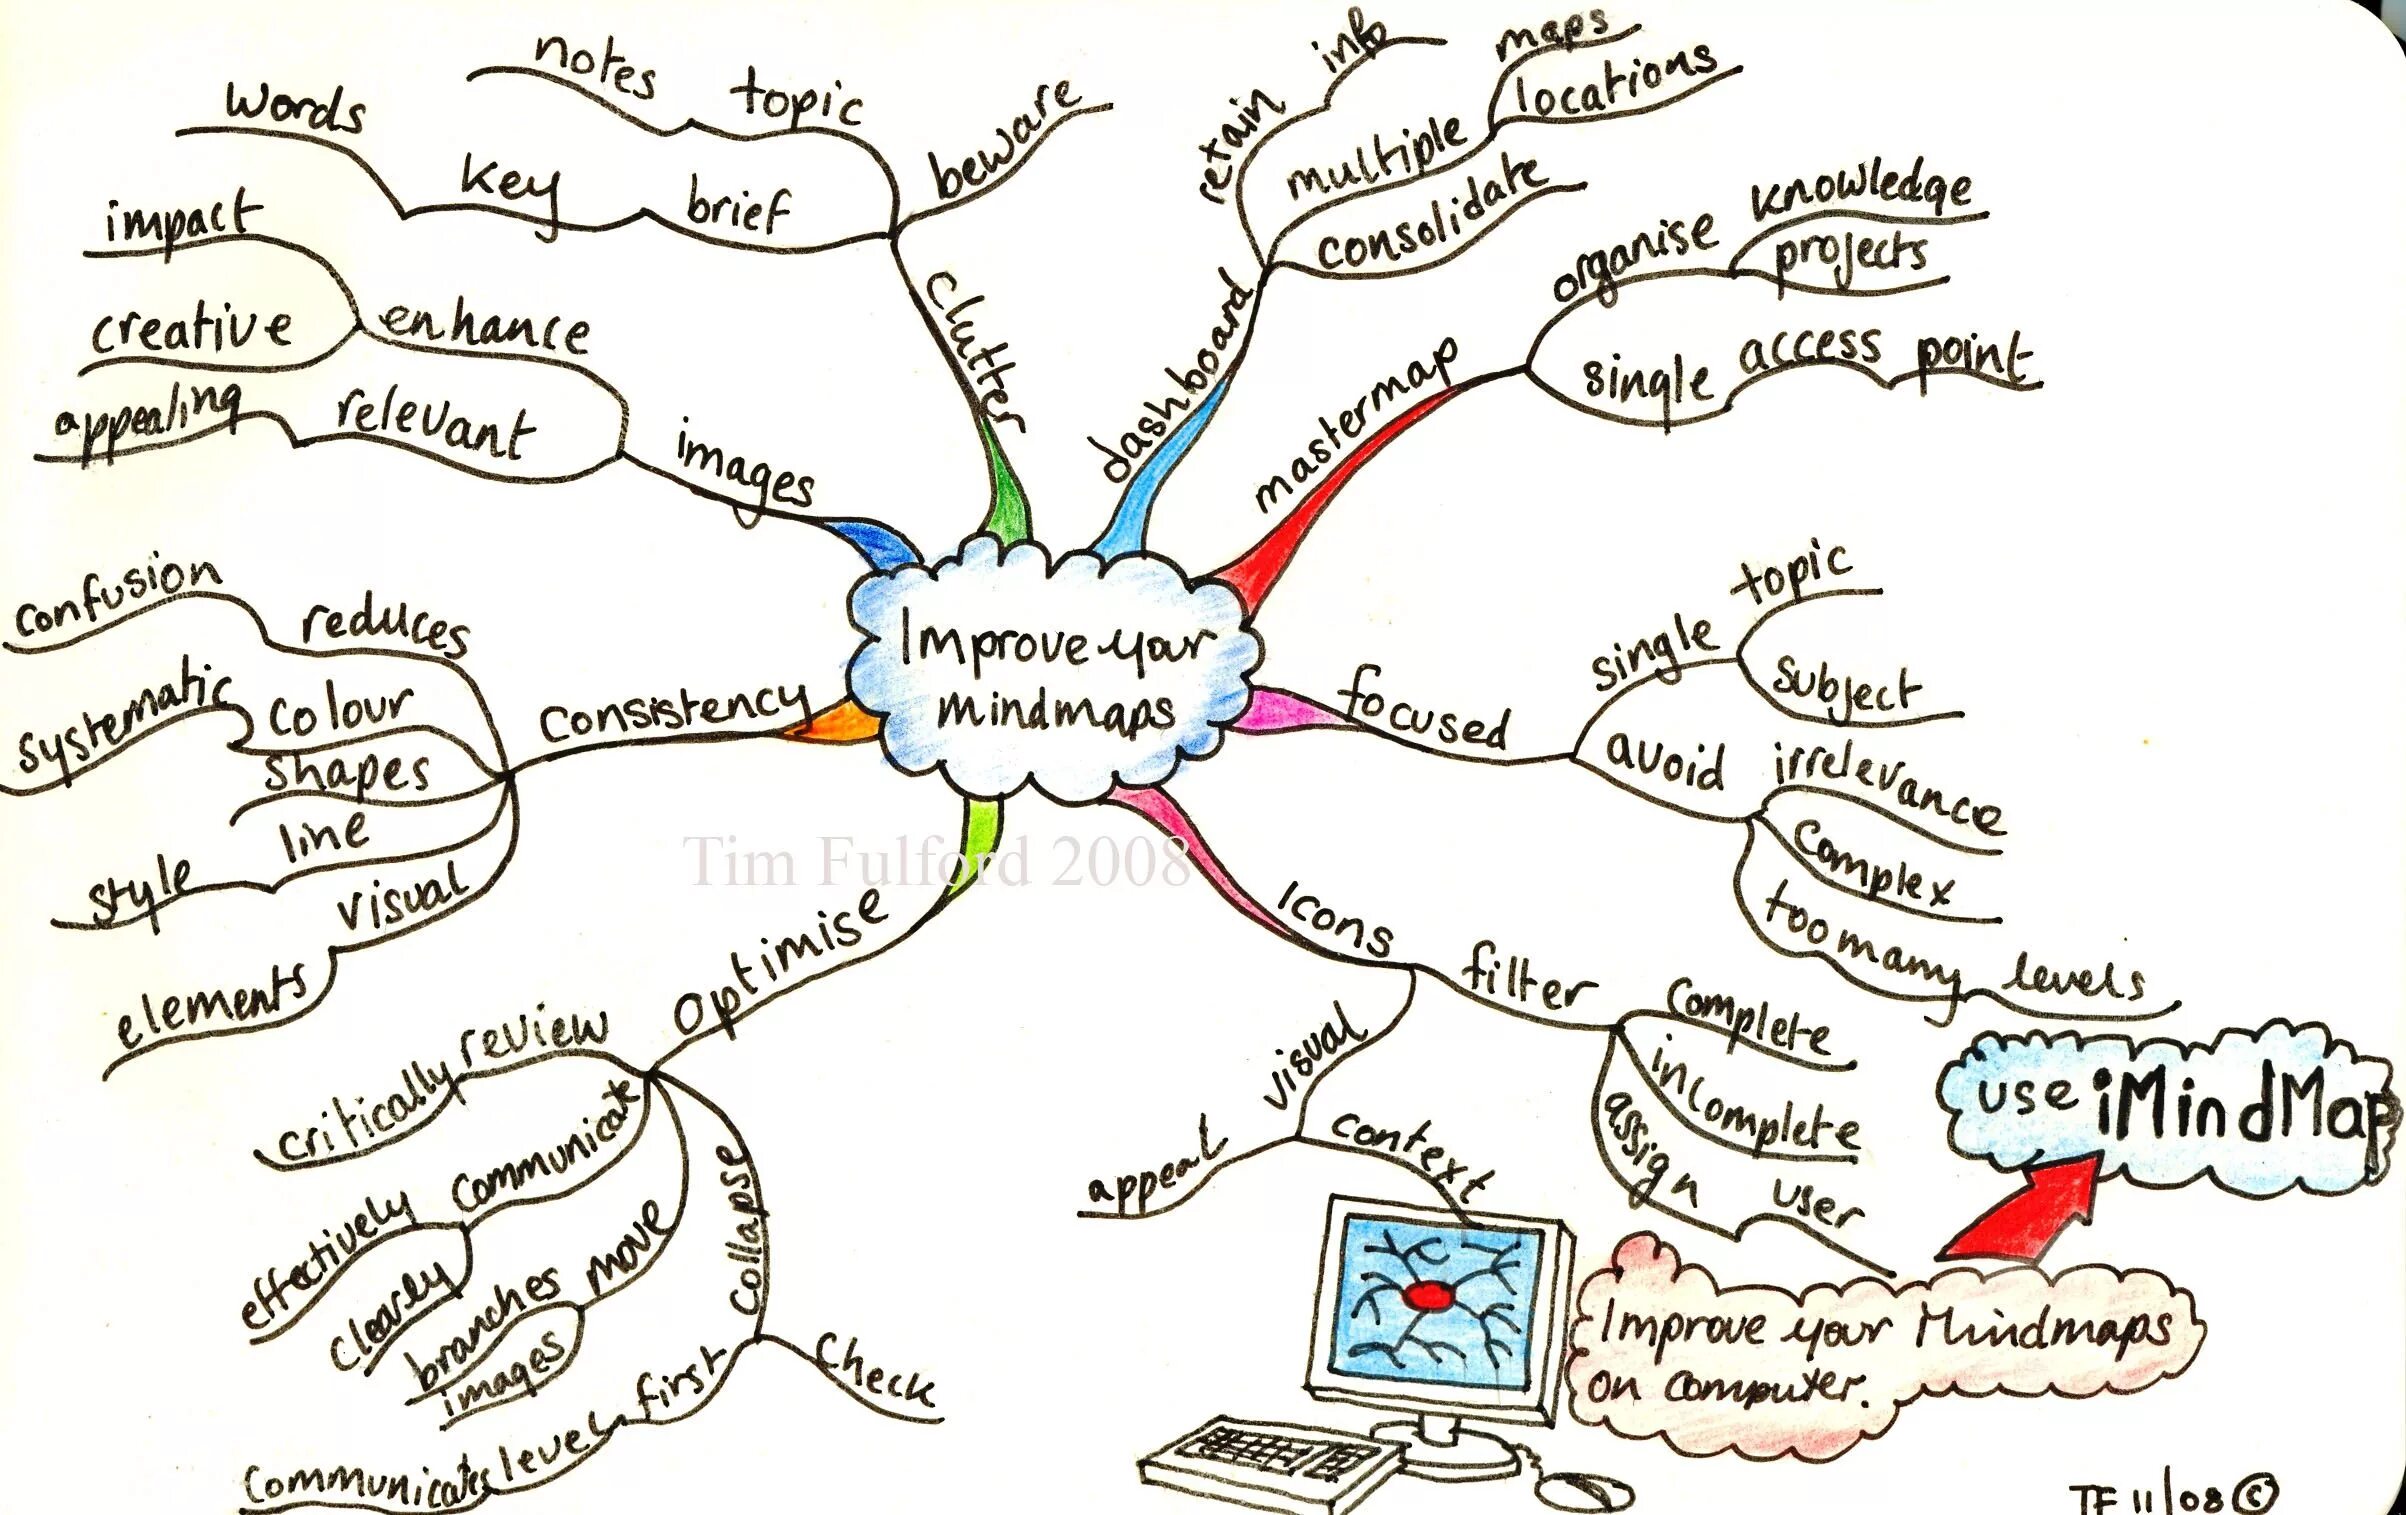 Improve your
mindmaps
clutter
beware
topic
notes
brief
key
words
images
enhance
impact
creative
relevant
appealing
Consistency
reduces
confusion
colour
systematic
shapes
line
style
visual
elements
Optimise
review
critically
communicate
effectively
clearly
move
branches
images
Collapse
check
first
level
communicates
dashboard
retain
info
multiple
maps
locations
consolidate
mastermap
organise
knowledge
projects
single access point
focused
single
topic
subject
avoid
irrelevance
complex
too many levels
Icons
filter
complete
incomplete
assign user
visual
appeal
context
use iMindMap
Improve your Mindmaps
on computer.
Tim Fulford 2008
TF 11/08 ©